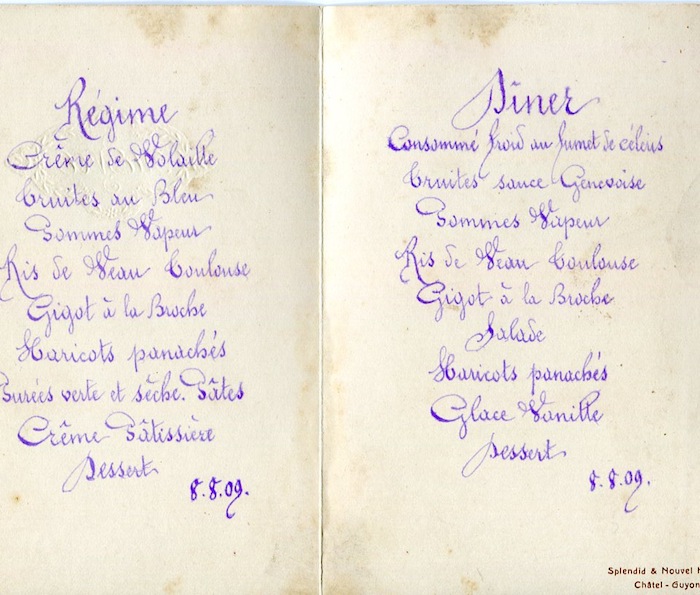 Régime
Crême de Volaille
Truites au Bleu
Pommes Vapeur
Ris de Veau Toulouse
Gigot à la Broche
Haricots panachés
Purées verte et sêche. Pâtes
Crême Pâtissière
Dessert
8.8.09.
Dîner
Consommé froid au fumet de céleris
Truites sauce Genevoise
Pommes Vapeur
Ris de Veau Toulouse
Gigot à la Broche
Salade
Haricots panachés
Glace Vanille
Dessert
8.8.09.
Splendid & Nouvel
Châtel-Guyon